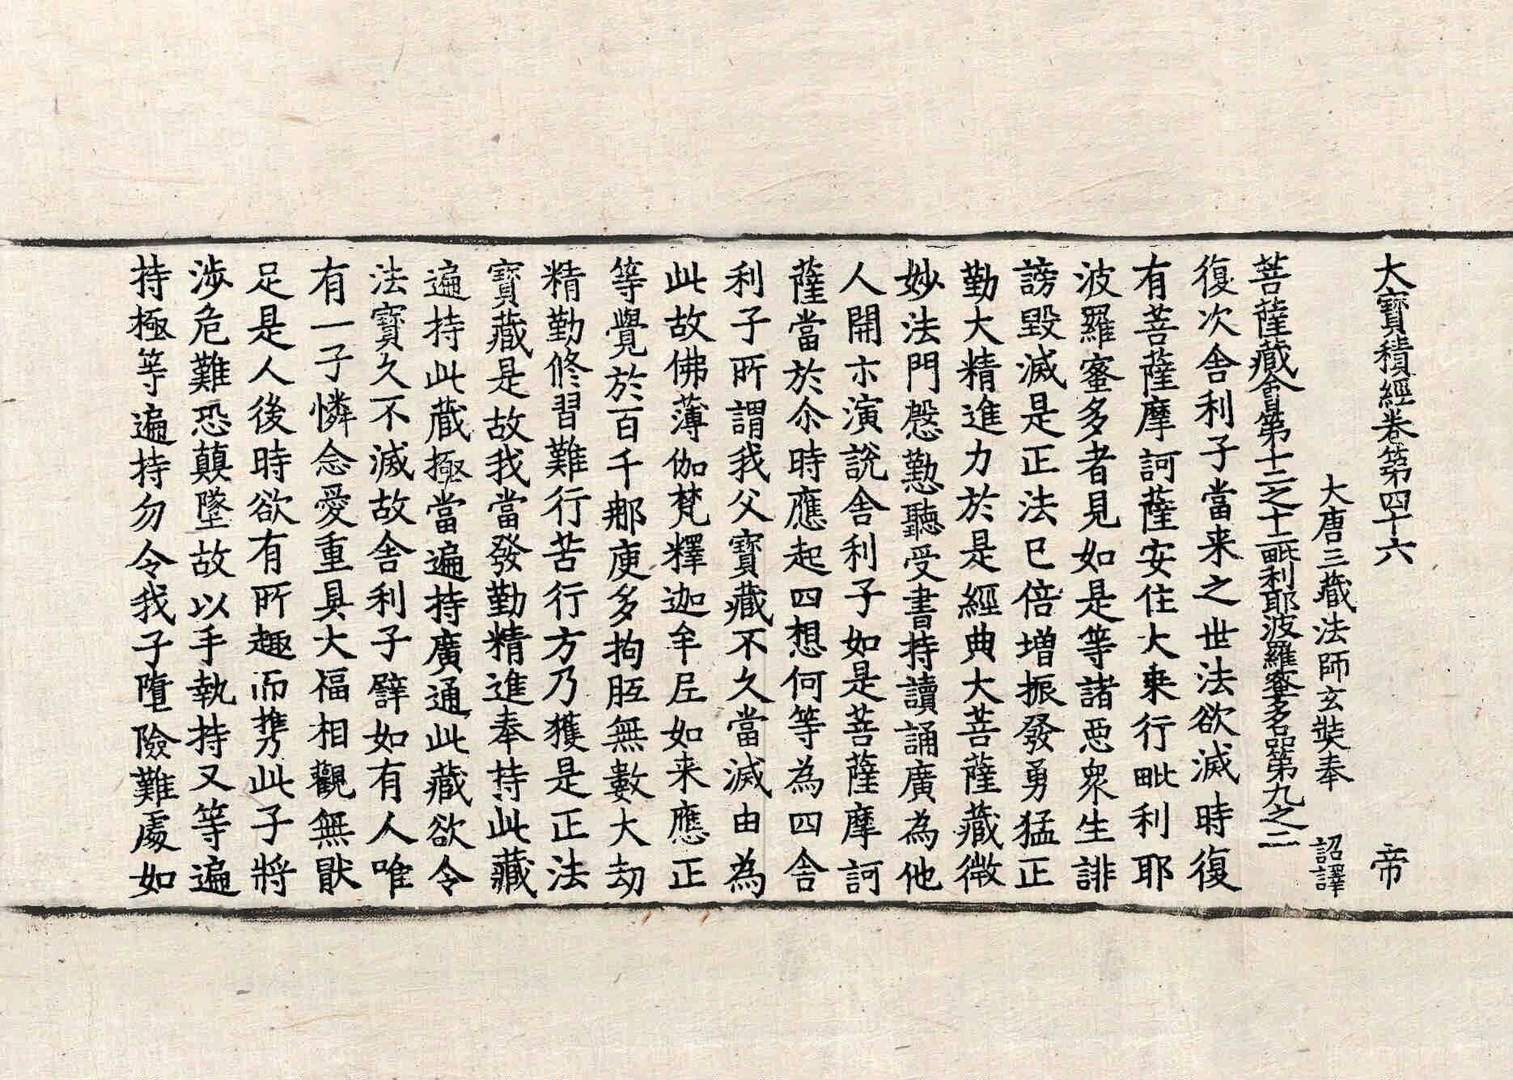 大寶積經卷第四十六　帝
大唐三藏法師玄奘奉　詔譯
菩薩藏會第十二之十二毗利耶波羅蜜多品第九之二
復次舍利子當来之世法欲滅時復
有菩薩摩訶薩安住大乗行毗利耶
波羅蜜多者見如是等諸惡衆生誹
謗毀滅是正法已倍增振發勇猛正
勤大精進力於是經典大菩薩藏微
妙法門慇懃聽受書持讀誦廣為他
人開示演說舍利子如是菩薩摩訶
薩當於尒時應起四想何等為四舍
利子所謂我父寶藏不久當滅由為
此故佛薄伽梵釋迦牟尼如来應正
等覺於百千那庾多拘胝無數大劫
精勤修習難行苦行方乃獲是正法
寶藏是故我當發勤精進奉持此藏
遍持此藏極當遍持廣通此藏欲令
法寶久不滅故舍利子譬如有人唯
有一子憐念愛重具大福相觀無猒
足是人後時欲有所趣而攜此子將
涉危難恐顛墜故以手執持又等遍
持極等遍持勿令我子墮險難處如